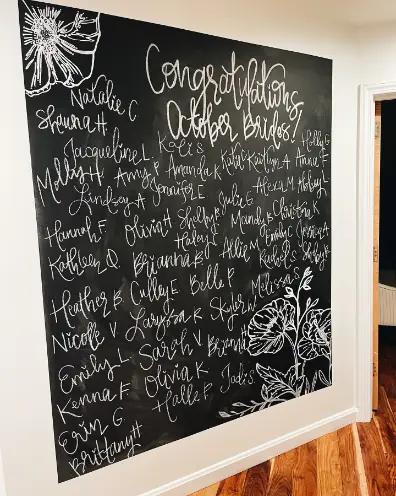 Congratulations
October Brides!
Natalie C
Shauna H
Jacqueline L. Kali S Holly G
Molly H Amy P Amanda K Katie Kaitlyn A Annie F
Lindsey A Jennifer E Alexa M
Hannah F. Olivia H Shelby Julie G Mandy B Christina K
Haley Emily C Jessica A
Kathleen Q. Brianna B Allie M Rachel S Shelby
Heather B. Culley E. Belle P Melissa
Nicole V Laryssa R Skyler
Emily L Sarah V Brianna
Kenna F Olivia K Jodi S
Erin G Halle P
Brittany H